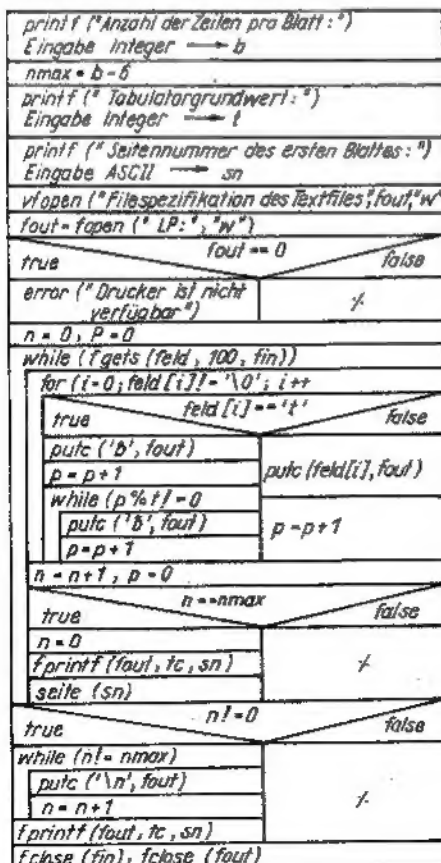 printf ("Anzahl der Zeilen pro Blatt:")
Eingabe Integer → b
nmax = b-6
printf (" Tabulatorgrundwert:")
Eingabe Integer → t
printf (" Seitennummer des ersten Blattes:")
Eingabe ASCII → sn
vfopen ("Filespezifikation des Textfiles", fout, "w")
fout = fopen (" LP:", "w")
fout == 0
true false
error ("Drucker ist nicht
verfügbar")
%
n = 0, P = 0
while (fgets (feld, 100, fin))
for (i=0; feld [i]!= '\0'; i++
feld [i] == 't'
true false
putc ('b', fout)
p = p+1
putc (feld[i], fout)
while (p % t != 0
putc ('b', fout)
p = p+1
p = p+1
n = n+1, p = 0
n == nmax
true false
n = 0
fprintf (fout, tc, sn)
%
seite (sn)
n != 0
true false
while (n != nmax)
putc ('\n', fout)
%
n = n+1
fprintf (fout, tc, sn)
fclose (fin), fclose (fout)